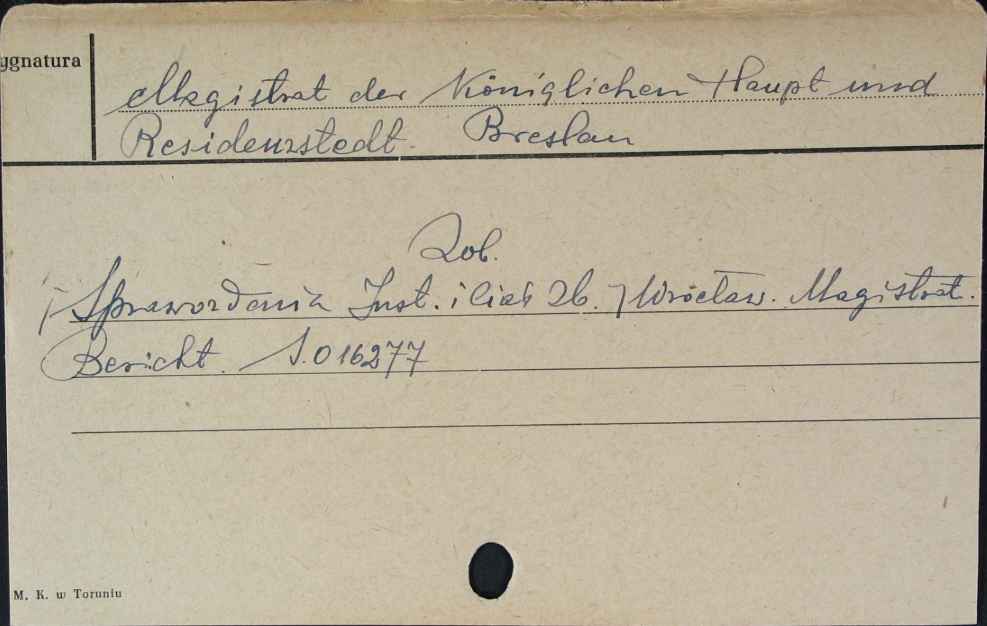 ygnatura
Magistrat der Königlichen Haupt und
Residenzstadt. Breslau
Zob.
Sprawozdania Inst. i Ciał Zb. / Wrocław. Magistrat.
Bericht. S.016277
M. K. w Toruniu